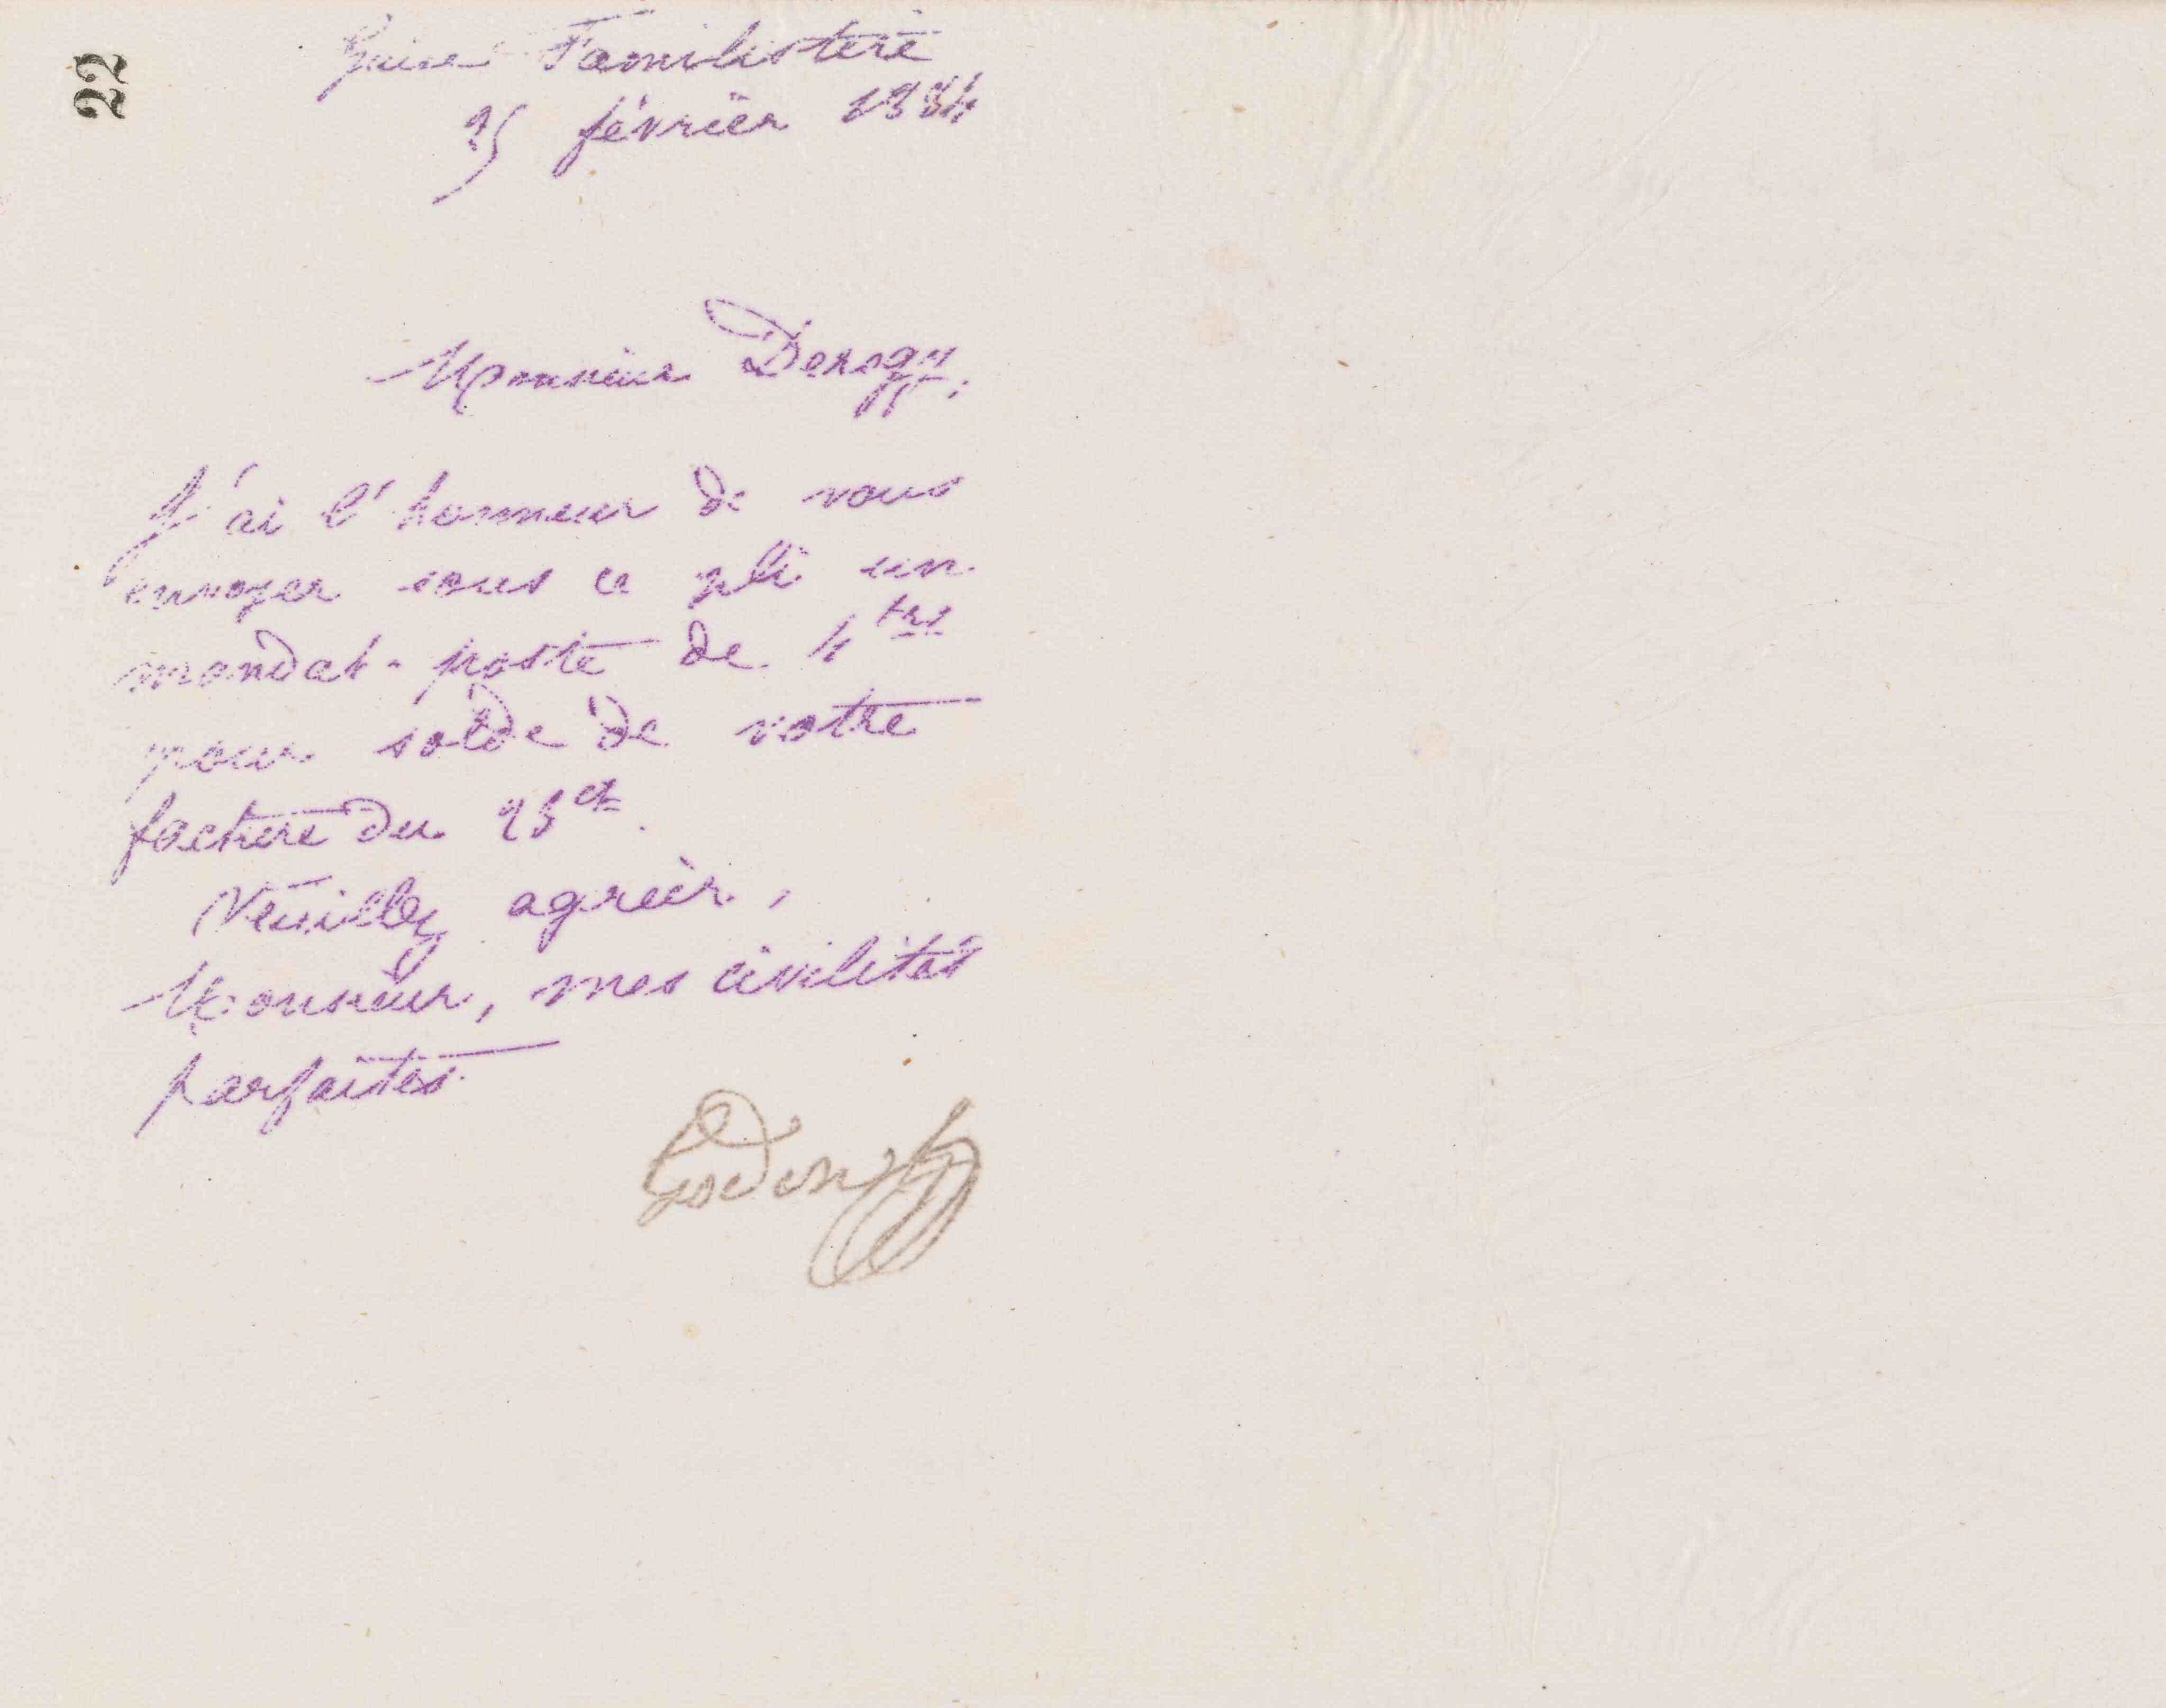 22
Guise Familistère
25 février 1884
Monsieur Derogy,
J'ai l'honneur de vous
envoyer sous ce pli un
mandat-poste de 4 frs
pour solde de votre
facture du 23 ct.
Veuillez agréer,
Monsieur, mes civilités
parfaites
Godin